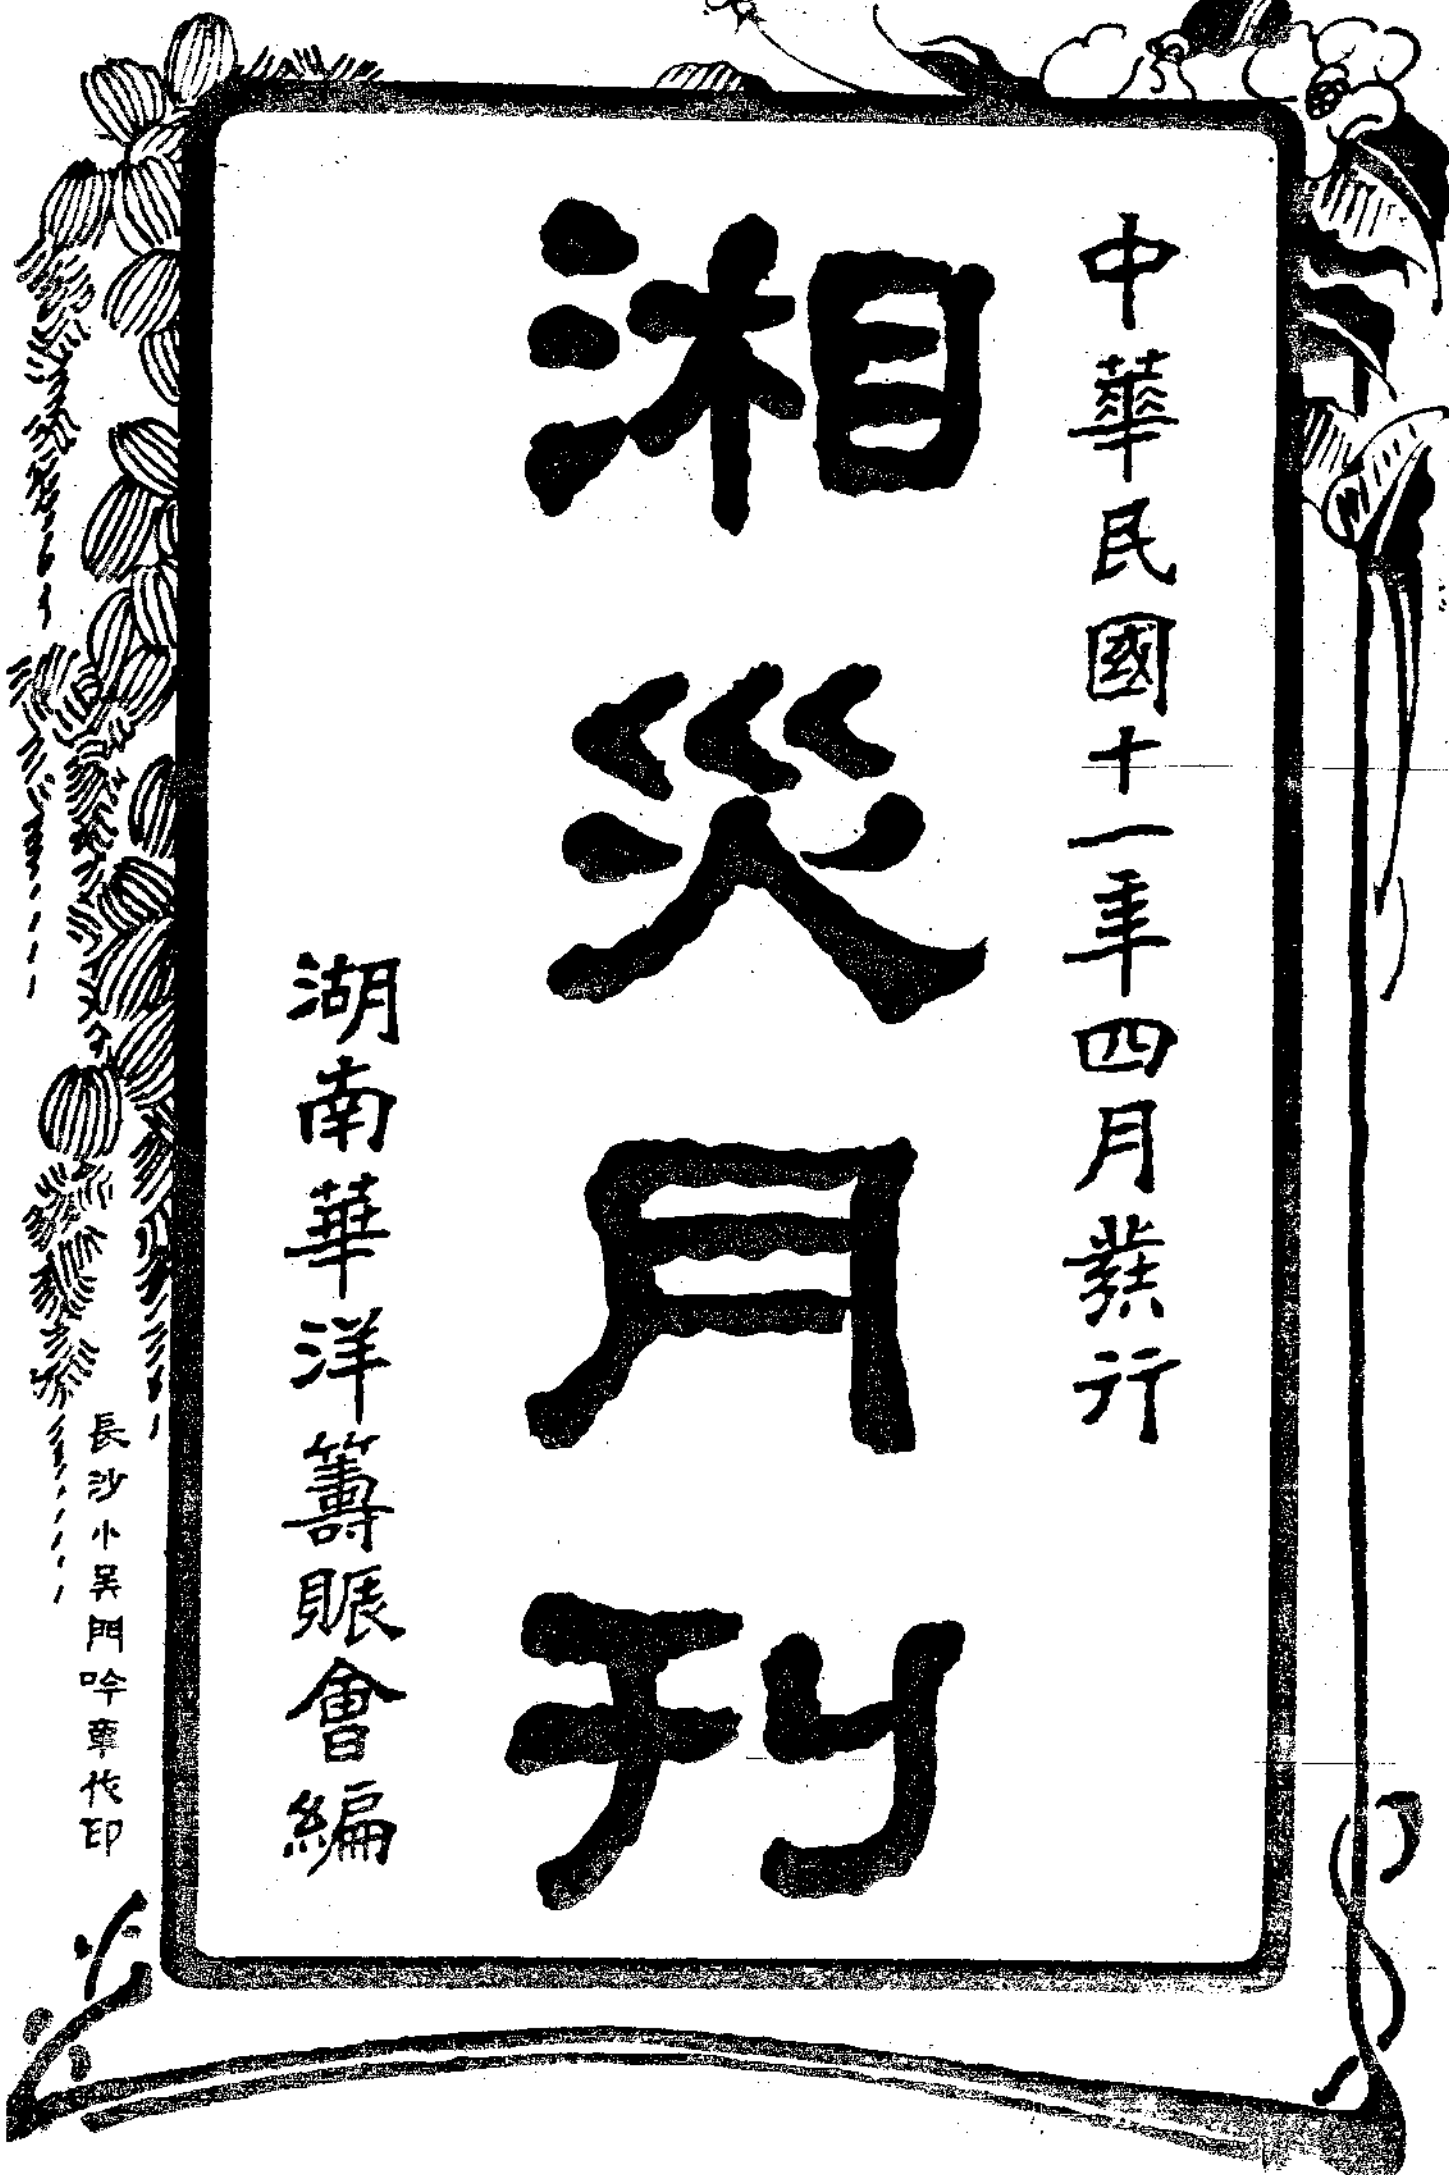 中華民國十一年四月發行
湘災月刊
湖南華洋籌賑會編
長沙小吴門吟章代印